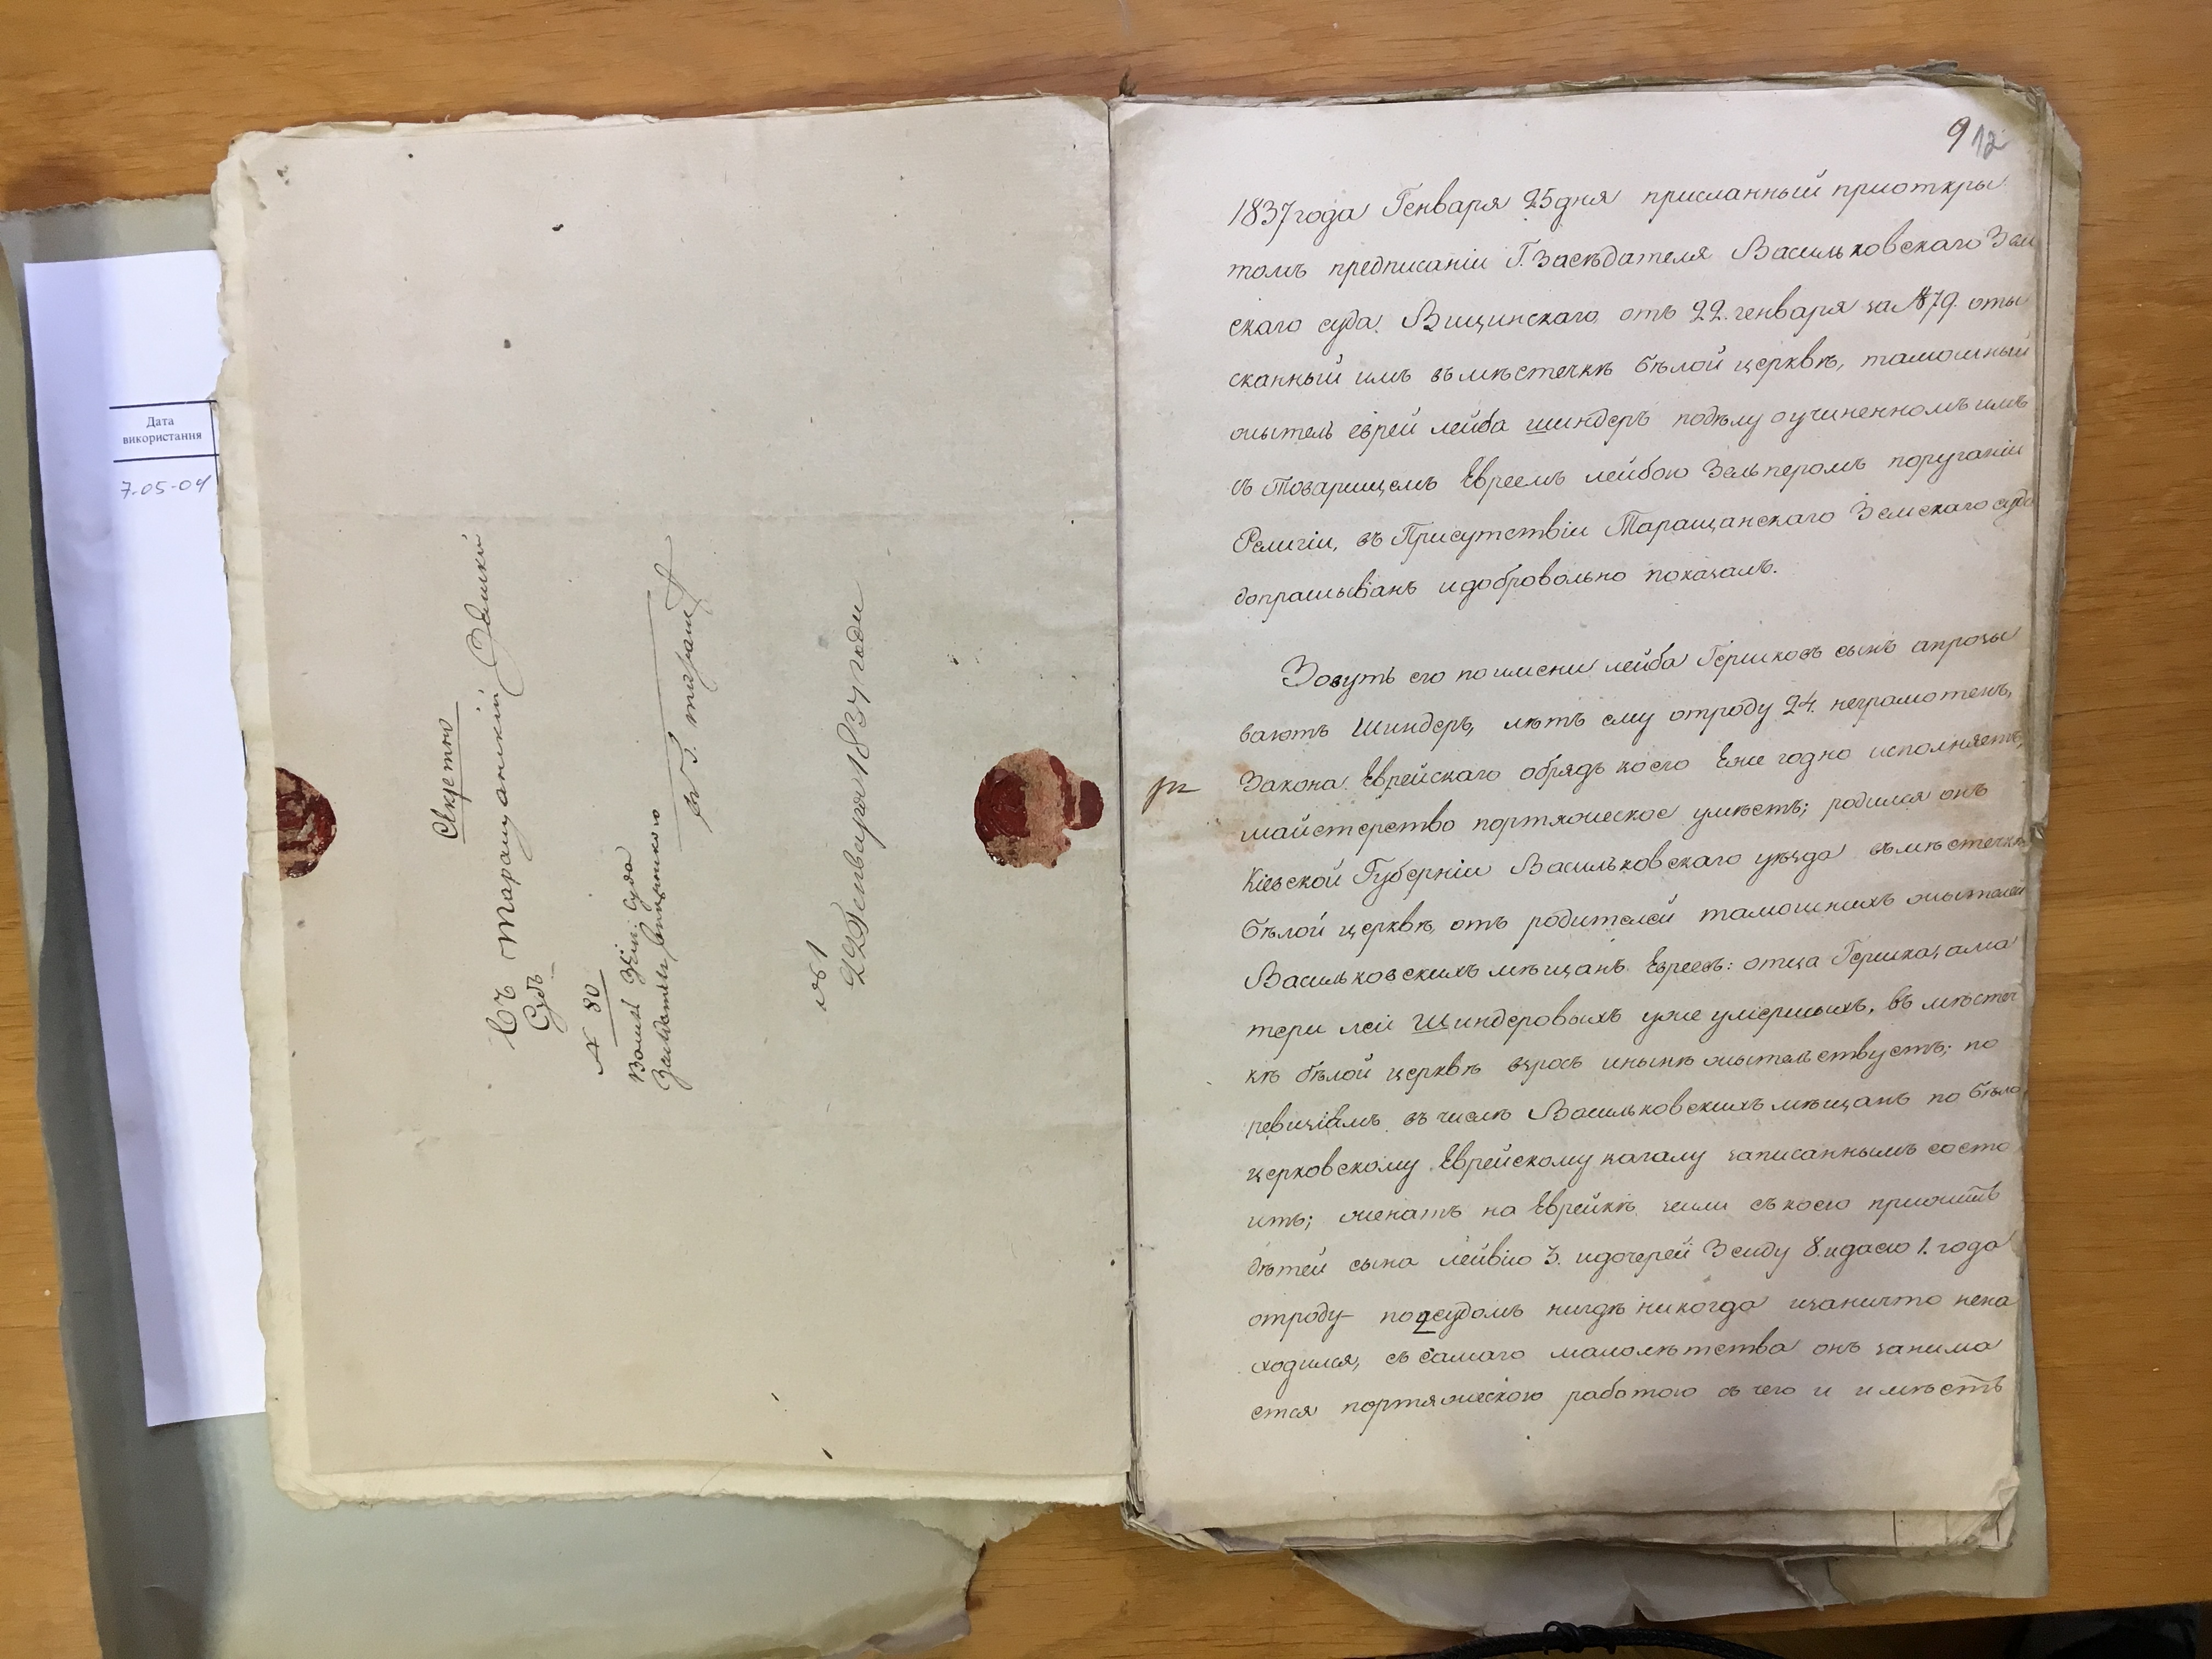 Дата
використання
7-05-04
Секретно
Въ Таращанскій Земскій
Судъ
№ 80
Засѣдатель Вищинскаго
въ Г. Таращѣ
22 Генваря 1837 года
9 12
1837 года Генваря 25 дня присланный приоткры
томъ предписаніи Г. Засѣдателя Васильковскаго Зем
скаго суда Вищинскаго отъ 22. генваря за № 79. оты
сканный имъ въ мѣстечкѣ бѣлой церквѣ, тамошный
житель еврей лейба шиндеръ подѣлу оучиненномъ имъ
съ товарищемъ Евреемъ лейбою Зельперомъ поруганіи
Религіи, въ Присутствіи Таращанскаго Земскаго суда
допрашыванъ идобровольно показалъ.
Зовутъ его поимени лейба Гершковъ сынъ апрозы
ваютъ Шиндеръ, лѣтъ ему отроду 24. неграмотенъ,
Закона Еврейскаго обрядъ коего Еже годно исполняетъ,
майстерство портяжеское умѣетъ; родился онъ
Кіевской Губерніи Васильковскаго уѣзда въмѣстечкѣ
бѣлой церквѣ, отъ родителей тамошнихъ жытелей
Васильковскихъ мѣщанъ Евреевъ: отца Гершка, ама
тери леи Шиндеровыхъ уже умершыхъ, въ мѣстеч
кѣ бѣлой церквѣ взросъ инынѣ жытельствуетъ; по
ревизіямъ въ числѣ Васильковскихъ мѣщанъ по бѣло
церковскому Еврейскому кагалу записаннымъ состо
итъ; женатъ на Еврейкѣ съкоею прижитъ
дѣтей сына лейвію 3. идочерей Зсиду 8. идасю 1. года
отроду— подсудомъ нигдѣ никогда изаничто нена
ходился, съ самаго малолѣтства онъ занима
ется портяжескою работою съ чего и имѣетъ